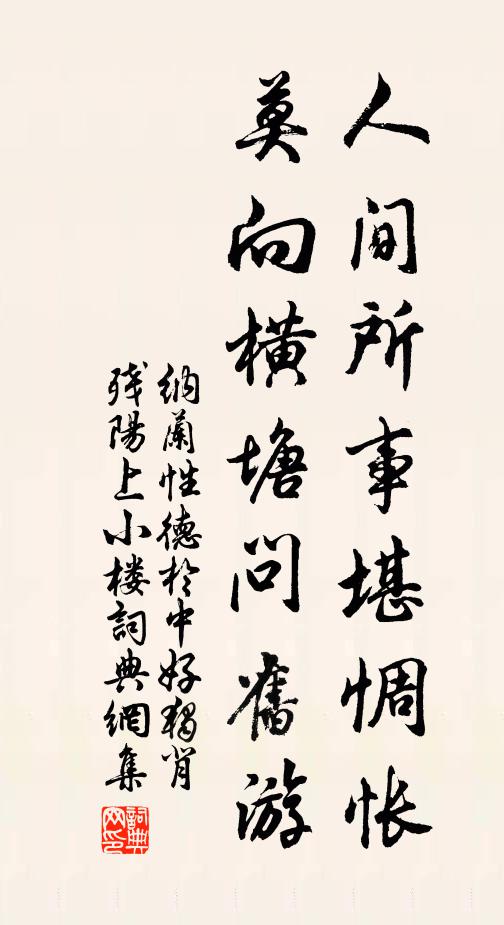 人间所事堪惆怅
莫向横塘问旧游
纳兰性德於中好独背
残阳上小楼词典网集
词典网印